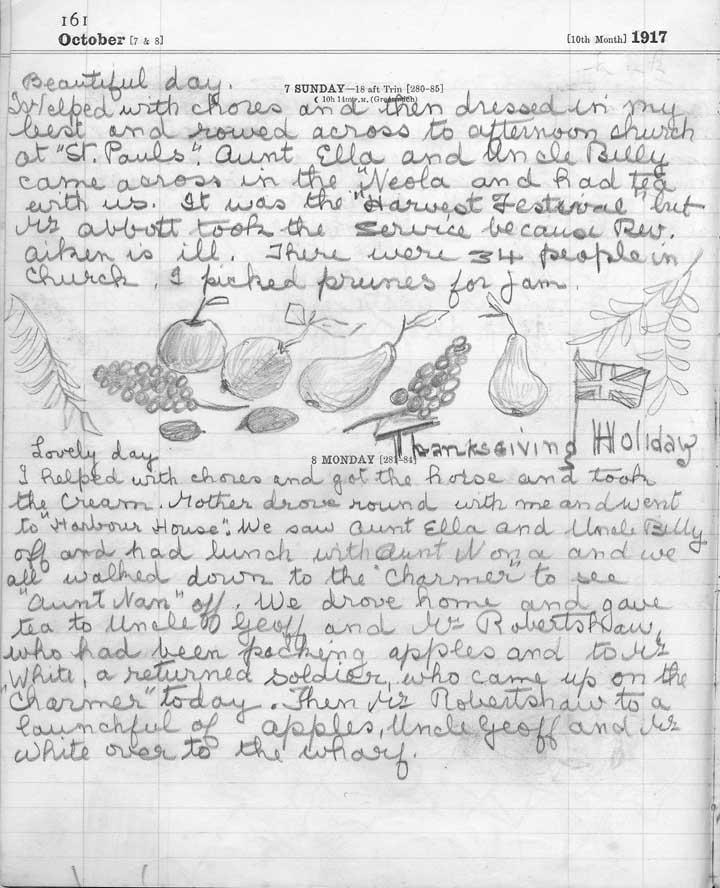 161
October [7 & 8]
[10th Month] 1917
Beautiful day.
7 SUNDAY—18 aft Trin [280-85]
☾ 10h 14m P.M. (Greenwich)
I Helped with chores and then dressed in my
best and rowed across to afternoon church
at "St. Pauls". Aunt Ella and Uncle Billy
came across in the "Neola and had tea
with us. It was the "Harvest Festival" but
Mr abbott took the Service because Rev.
aiken is ill. There were 34 people in
church. I picked prunes for jam.
Thanksgiving Holiday
Lovely day
8 MONDAY [281-84]
I helped with chores and got the horse and took
the Cream. Mother drove round with me and went
to "Harbour House". We saw Aunt Ella and Uncle Billy
off and had lunch with Aunt Nona and we
all walked down to the "Charmer" to see
"Aunt Nan" off. We drove home and gave
tea to Uncle Geoff and Mr Robertshaw,
who had been packing apples and to Mr
White, a returned soldier, who came up on the
"Charmer" today. Then Mr Robertshaw to a
launchful of apples, Uncle Geoff and Mr
White over to the wharf.